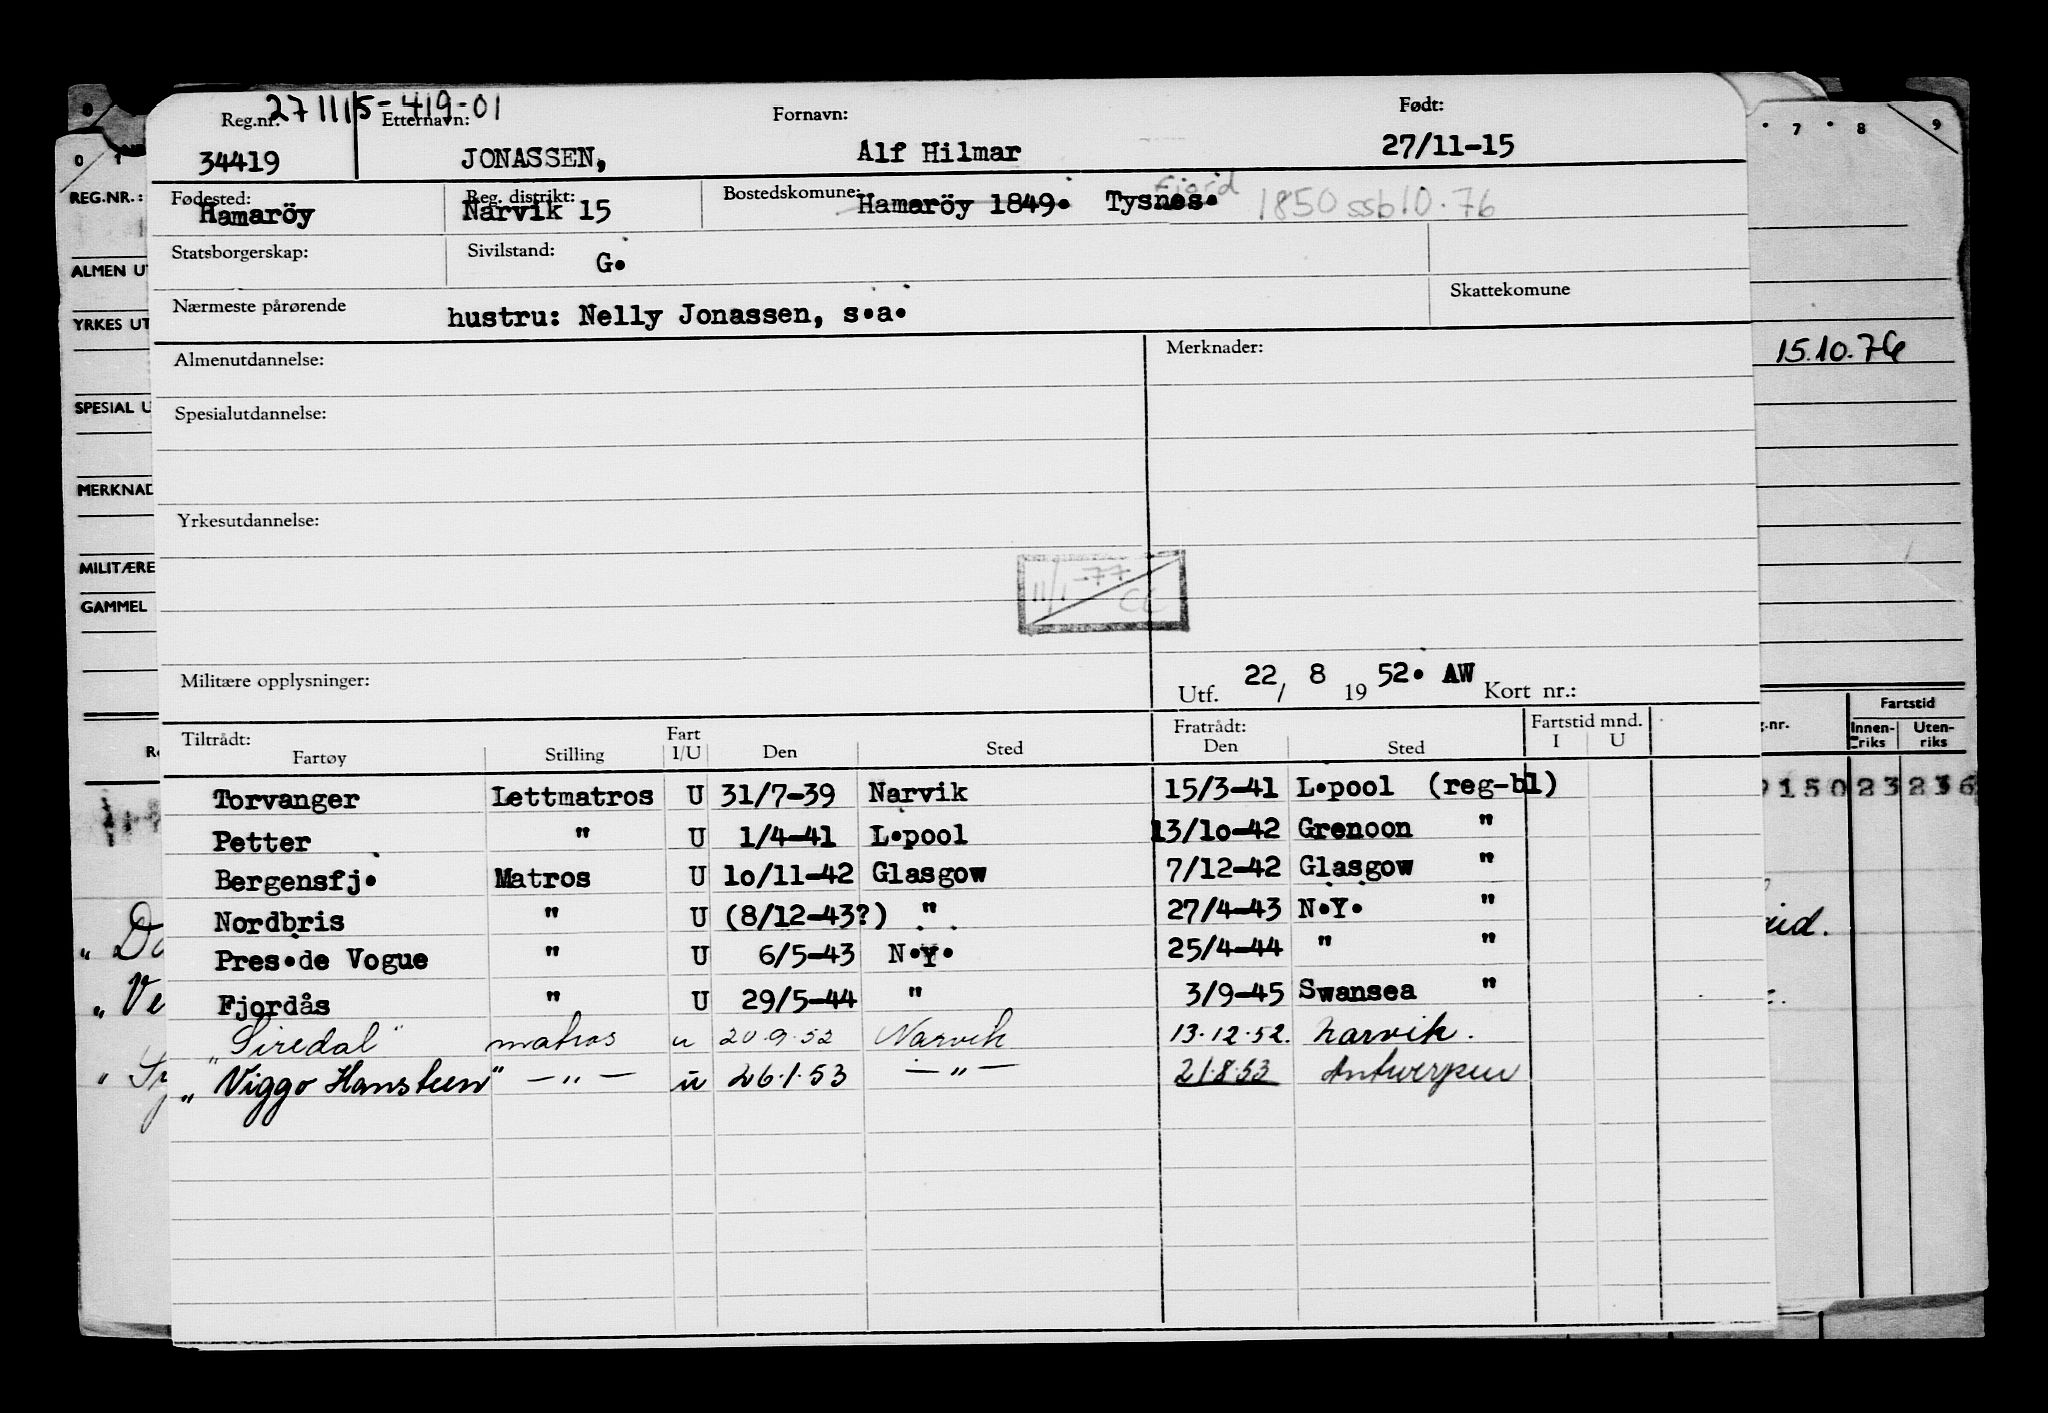 271115-419-01
Reg.nr. Etternavn: Fornavn: Født:
34419 JONASSEN, Alf Hilmar 27/11-15
Fødested: Reg. distrikt: Bostedskomune:
Hamaröy Narvik 15 Hamaröy 1849. Tysnes. fjord 1850 ssb 10.76
Statsborgerskap: Sivilstand: G.
Nærmeste pårørende hustru: Nelly Jonassen, s.a. Skattekomune
Almenutdannelse: Merknader:
Spesialutdannelse:
Yrkesutdannelse:
11/1 -77 CC
Militære opplysninger: Utf. 22/ 8 19 52. AW Kort nr.:
Tiltrådt: Fratrådt: Fartstid mnd.
Fartøy Stilling Fart I/U Den Sted Den Sted I U
Torvanger Lettmatros U 31/7-39 Narvik 15/3-41 L.pool (reg-bl)
Petter " U 1/4-41 L.pool 13/10-42 Grenoon "
Bergensfj. Matros U 10/11-42 Glasgow 7/12-42 Glasgow "
Nordbris " U (8/12-43?) " 27/4-43 N.Y. "
Pres.de Vogue " U 6/5-43 N.Y. 25/4-44 " "
Fjordås " U 29/5-44 " 3/9-45 Swansea "
"Siredal" matros u 20.9.52 Narvik 13.12.52. narvik.
"Viggo Hansteen" -"- u 26.1.53 -"- 21.8.53 Antwerpen
0 1
REG.NR.:
ALMEN UT
YRKES UT
SPESIAL U
MERKNAD
MILITÆRE
GAMMEL
7 8 9
15.10.76
Fartstid
g.nr. Innenriks Utenriks
150 23 236